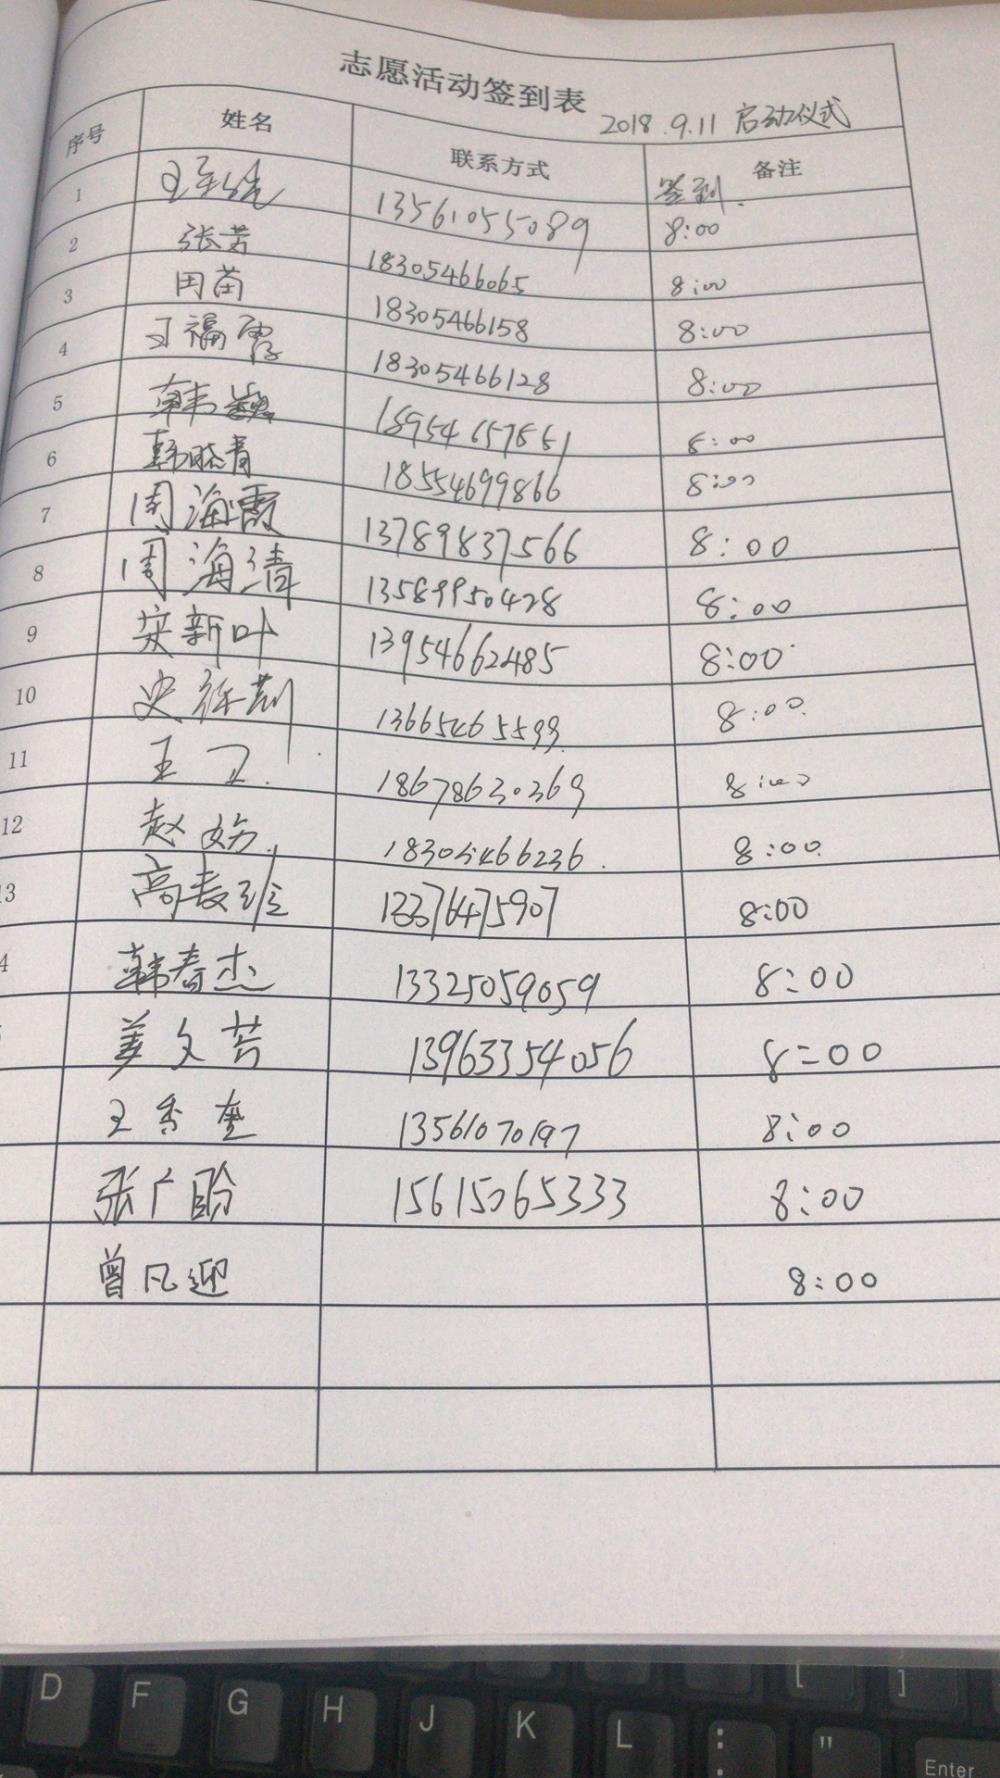 志愿活动签到表 2018.9.11 启动仪式
序号 姓名 联系方式 签到. 备注
1 13561055089 8:00
2 张芳 18305466065 8:00
3 田苗 18305466158 8:00
4 18305466128 8:00
5 韩 8:00
6 韩晓青 18554699866 8:00
7 周海霞 13789837566 8:00
8 周海清 13589950428 8:00
9 新叶 13954662485 8:00
10 史 8:00
11 王 18678630369 8:00
12 赵 18305466236. 8:00
13 高 8:00
4 韩春杰 13325059059 8:00
姜文芳 13963354056 8:00
王香奎 13561070197 8:00
张广盼 15615065333 8:00
曾凡迎 8:00
D F G H J K L : " [ ] Enter